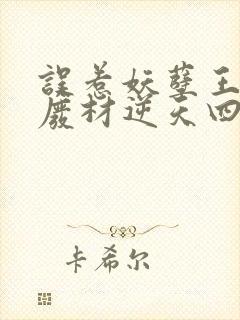 誤惹妖孽王
廢材逆天四
卡希尔